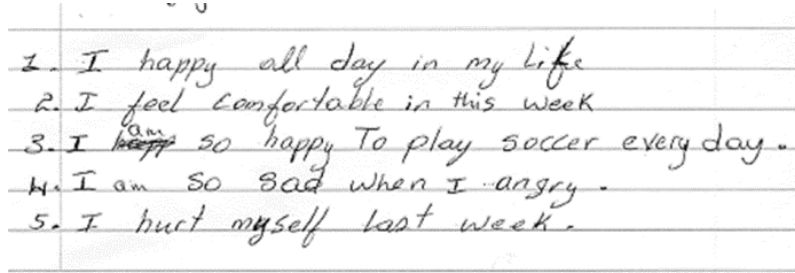 1. I happy all day in my Life
2. I feel comfortable in this week
3. I am so happy To play soccer every day.
4. I am so sad when I angry.
5. I hurt myself last week.